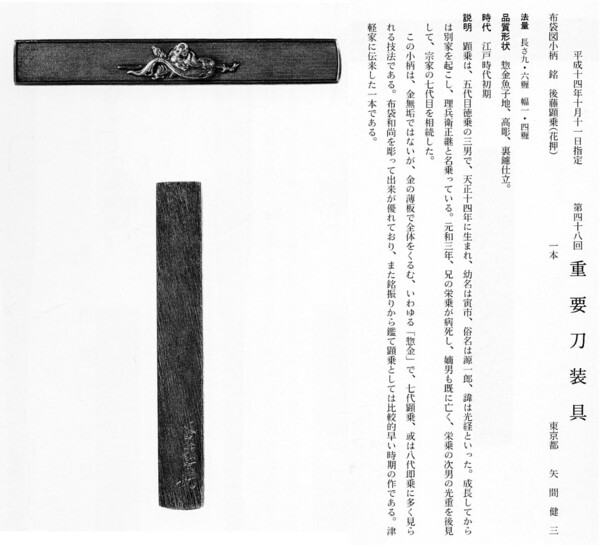 平成十四年十月十一日指定　第四十八回 重要刀装具
布袋図小柄　銘　後藤顕乗(花押)　一本　東京都　矢間健三
法量　長さ九・六糎　幅一・四糎
品質形状　惣金魚子地、高彫、裏鑢仕立。
時代　江戸時代初期
説明　顕乗は、五代目徳乗の三男で、天正十四年に生まれ、幼名は寅市、俗名は源一郎、諱は光経といった。成長してから
は別家を起こし、理兵衛正継と名乗っている。元和三年、兄の栄乗が病死し、嫡男も既に亡く、栄乗の次男の光重を後見
して、宗家の七代目を相続した。
この小柄は、金無垢ではないが、金の薄板で全体をくるむ、いわゆる「惣金」で、七代顕乗、或は八代即乗に多く見ら
れる技法である。布袋和尚を彫って出来が優れており、また銘振りから鑑て顕乗としては比較的早い時期の作である。津
軽家に伝来した一本である。